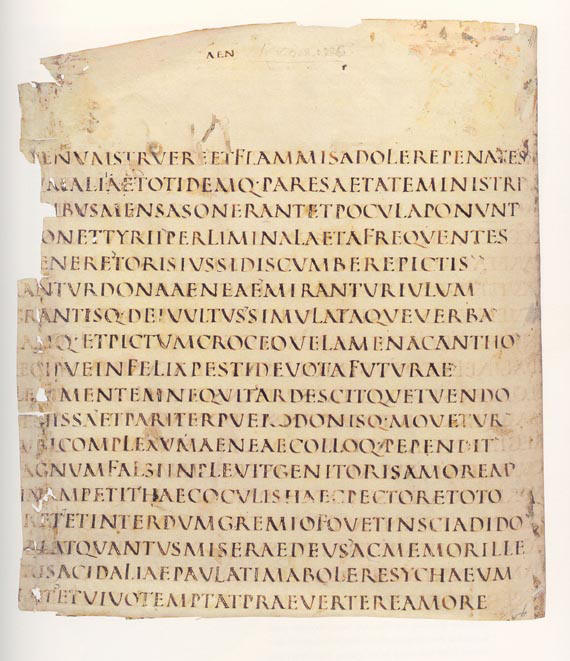 AEN
ENVMSTRVEREETFLAMMISADOLEREPENATES
VMALIAETOTIDEMQ·PARESAETATEMINISTRI
IBVSMENSASONERANTETPOCVLAPONVNT
ONETTYRIIPERLIMINALAETAFREQVENTES
ENERETORISIVSSIDISCVMBEREPICTIS
ANTVRDONAAENEAEMIRANTVRIVLVM
RANTISQ·DEIVVLTVSSIMVLATAQVEVERBA
AMQ·ETPICTVMCROCEOVELAMENACANTHO
ECIPVEINFELIXPESTIDEVOTAFVTVRAE
ERIMENTEMNEQVITARDESCITQVETVENDO
NISSAETPARITERPVERODONISQ·MOVETVR
VBICOMPLEXVMAENEAECOLLOQ·PEPENDIT
AGNVMFALSIINPLEVITGENITORISAMOREM
INAMPETITHAECOCVLISHAECPECTORETOTO
RETETINTERDVMGREMIOFOVETINSCIADIDO
DEATQVANTVSMISERAEDEVSACMEMORILLE
RISACIDALIAEPAVLATIMABOLERESYCHAEVM
ITETVIVOTEMPTATPRAEVERTEREAMORE